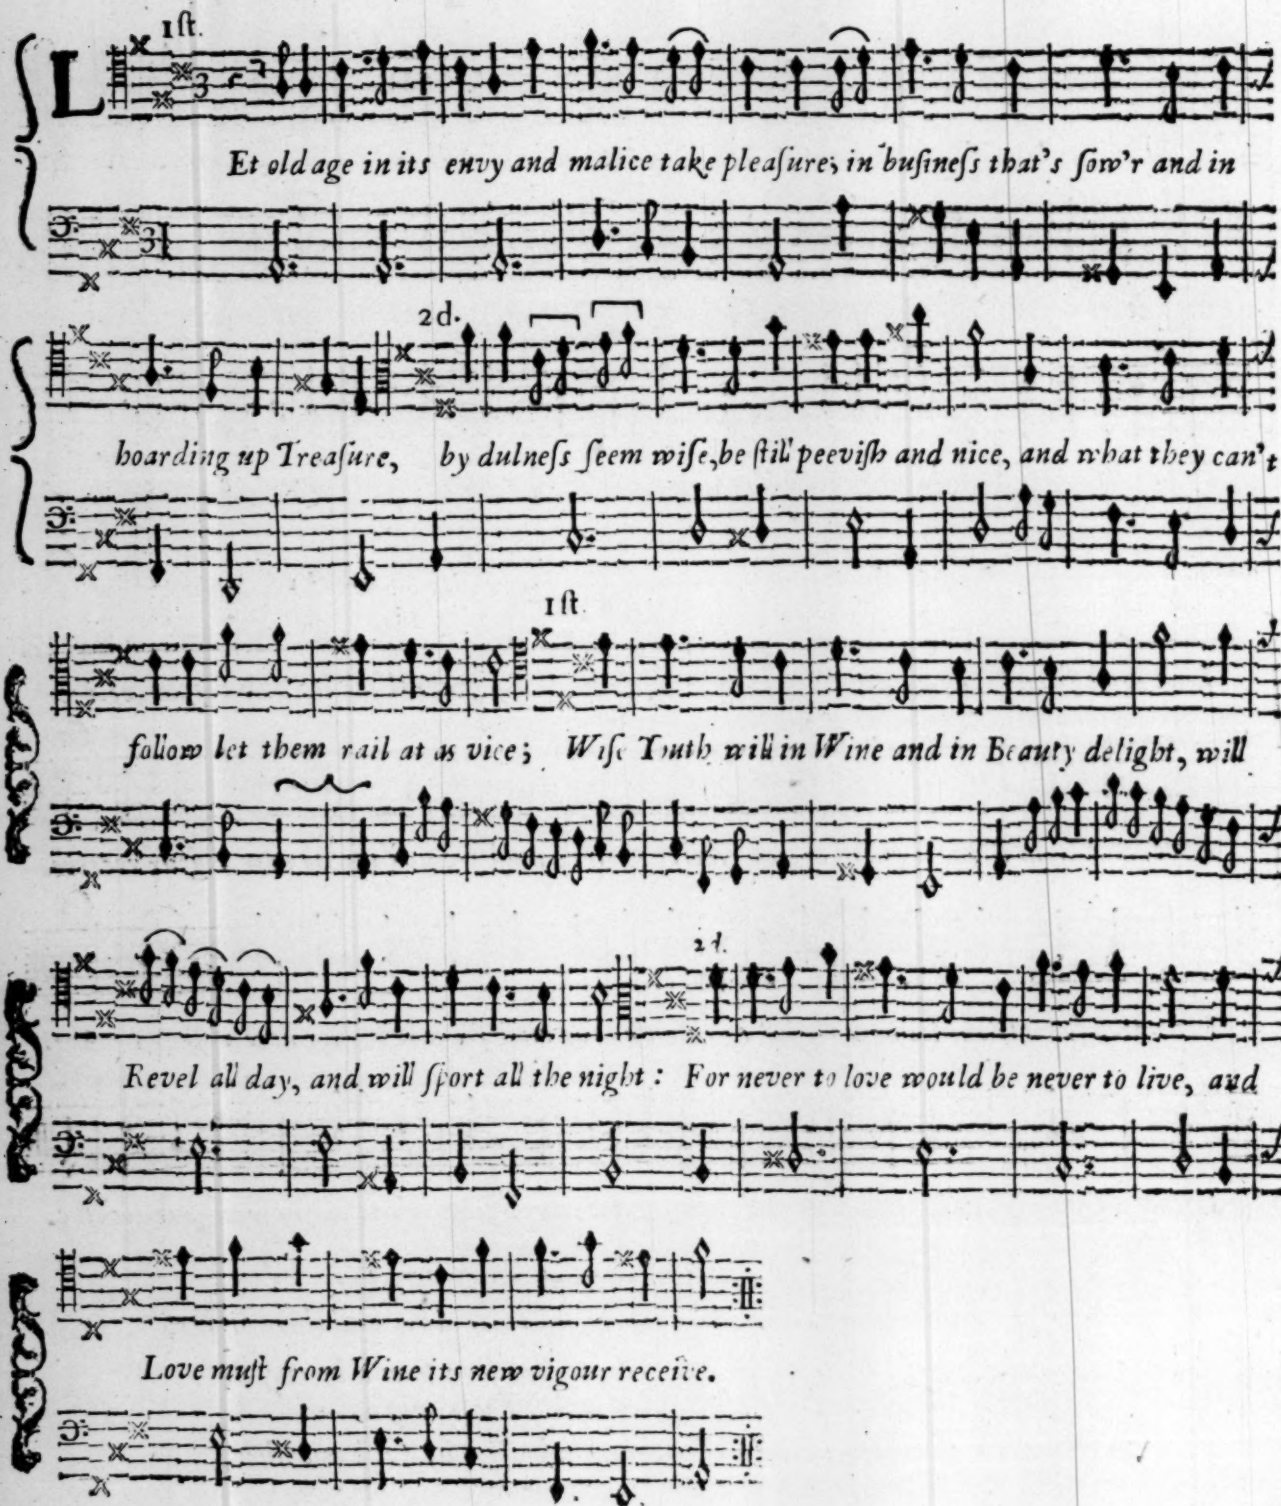 1ſt.
LEt old age in its envy and malice take pleaſure; in buſineſs that's ſow'r and in
2d.
hoarding up Treaſure, by dulneſs ſeem wiſe, be ſtill peeviſh and nice, and what they can't
1ſt.
follow let them rail at as vice; Wiſe Youth will in Wine and in Beauty delight, will
2d.
Revel all day, and will ſport all the night: For never to love would be never to live, and
Love muſt from Wine its new vigour receive.